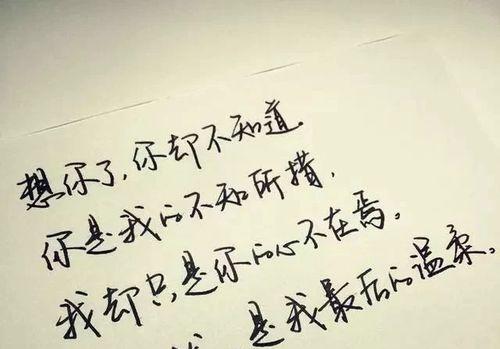 想你了,你却不知道.
你是我的不知所措,
我却只是你的心不在焉。
是我最后的温柔。